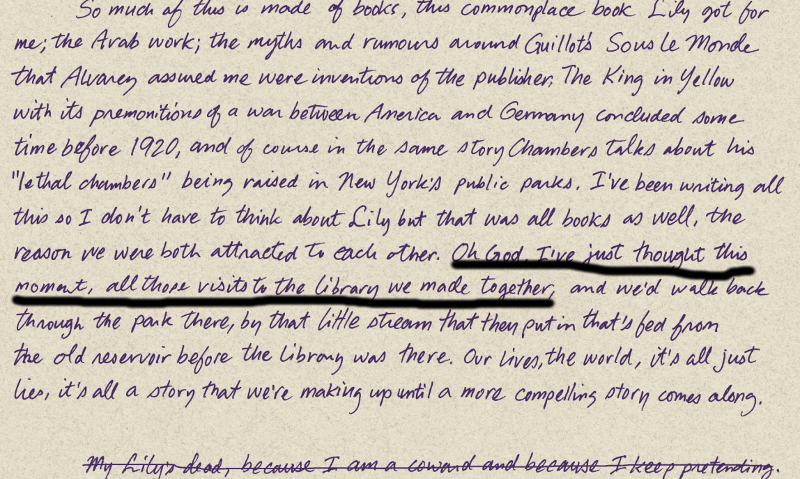 So much of this is made of books, this commonplace book Lily got for
me; the Arab work; the myths and rumours around Guillot's Sous le Monde
that Alvarez assured me were inventions of the publisher; The King in Yellow
with its premonitions of a war between America and Germany concluded some
time before 1920, and of course in the same story Chambers talks about his
"lethal chambers" being raised in New York's public parks. I've been writing all
this so I don't have to think about Lily but that was all books as well, the
reason we were both attracted to each other. Oh God, I've just thought this
moment, all those visits to the library we made together, and we'd walk back
through the park there, by that little stream that they put in that's fed from
the old reservoir before the library was there. Our lives, the world, it's all just
lies, it's all a story that we're making up until a more compelling story comes along.
My Lily's dead, because I am a coward and because I keep pretending.